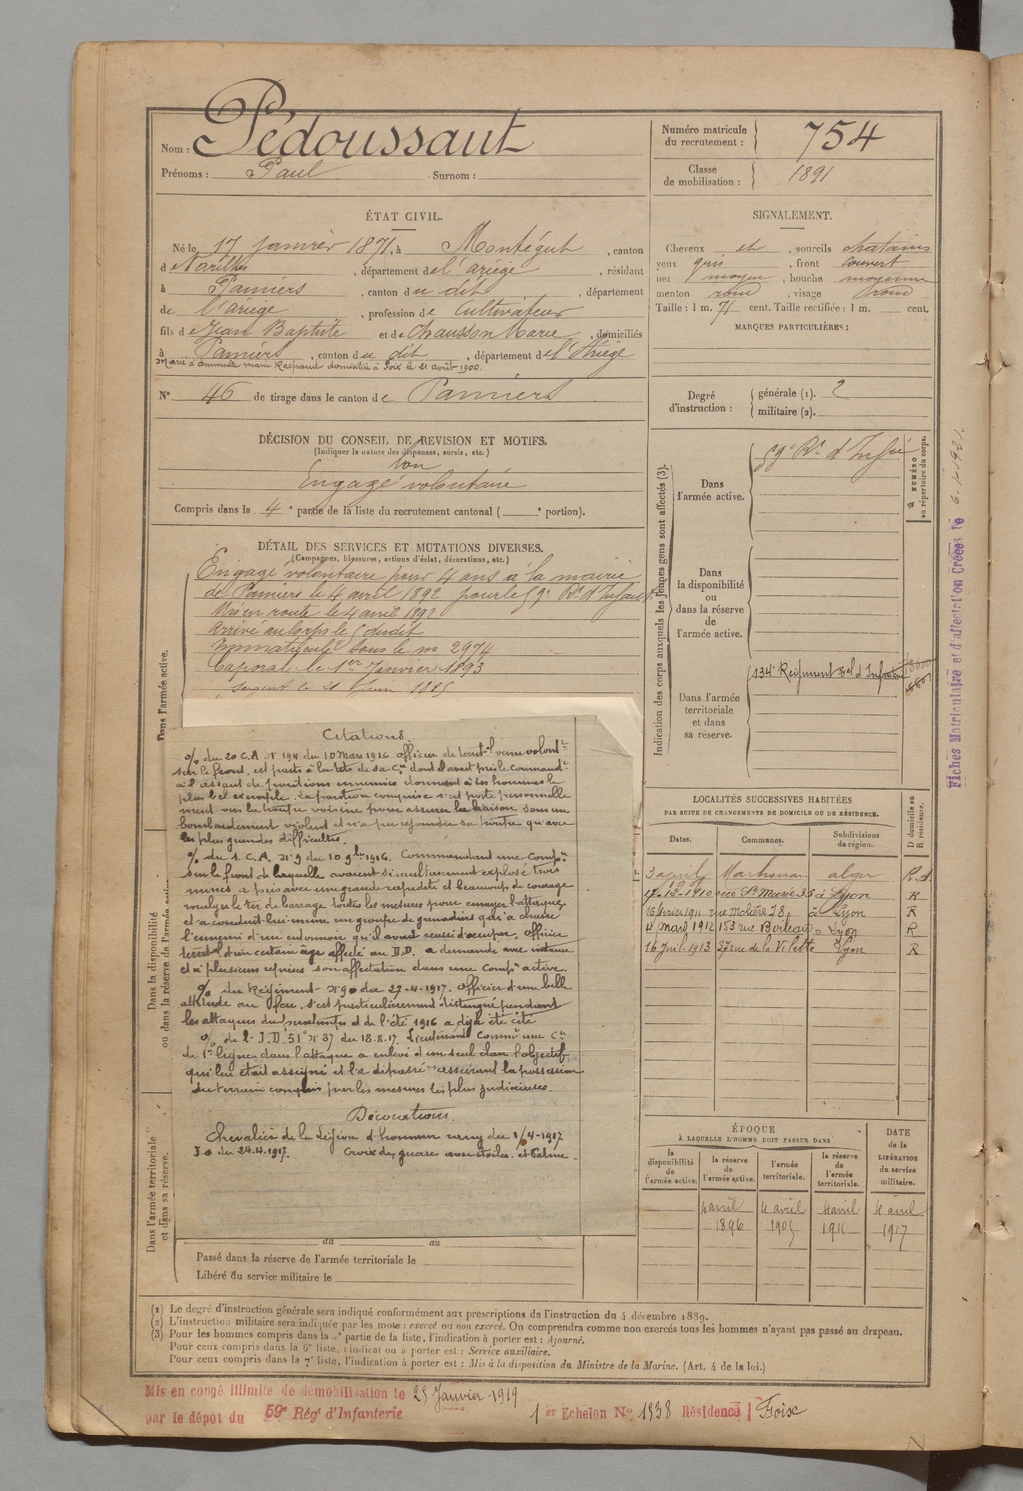 Nom : Pédoussaut
Prénoms : Paul Surnom :
Numéro matricule du recrutement : 754
Classe de mobilisation : 1891
ÉTAT CIVIL.
Né le 17 Janvier 1871, à Montégut, canton
de Varilhes, département de l'ariège, résidant
à Pamiers, canton du dit, département
de l'ariège, profession de Cultivateur
fils de Jean Baptiste et de Chausson Marie, domiciliés
à Pamiers, canton du dit, département de l'Ariège
Marié à Raspaud domiciliée à Foix le 21 août 1900.
N° 46 de tirage dans le canton de Pamiers
SIGNALEMENT.
Cheveux et, sourcils chatains
yeux gris, front couvert
nez moyen, bouche moyenne
menton rond, visage rond
Taille : 1 m. 71 cent. Taille rectifiée : 1 m. cent.
MARQUES PARTICULIÈRES :
Degré d'instruction : générale (1). 2
militaire (2).
DÉCISION DU CONSEIL DE REVISION ET MOTIFS.
(Indiquer la nature des dispenses, sursis, etc.)
bon
Engagé volontaire
Compris dans la 4e partie de la liste du recrutement cantonal ( e portion).
DÉTAIL DES SERVICES ET MUTATIONS DIVERSES.
(Campagnes, blessures, actions d'éclat, décorations, etc.)
Engagé volontaire pour 4 ans à la mairie
de Pamiers le 4 avril 1892 pour le 59e Rt d'Infanterie
Mis en route le 4 avril 1892
Arrivé au corps le 5 dudit
Immatriculé sous le no 2974
Caporal le 1er Janvier 1893
Sergent le 21
Dans l'armée active.
Dans la disponibilité ou dans la réserve de l'armée active
Dans l'armée territoriale et dans sa réserve.
Citations.
O/ du 20 C.A. N° 194 du 10 Mars 1916 officier de territ.l venu volont.t
sur le front, est parti à la tête de sa Cie dont il avait pris le commandt
à l'assaut de positions ennemies donnant à ses hommes le
plus bel exemple. La position conquise s'est porté personnelle
ment vers la troupe voisine pour assurer la liaison sous un
bombardement violent et n'a pu rejoindre sa troupe qu'avec
les plus grandes difficultés.
O/ du 1. C.A. N° 9 du 10 9bre 1916. Commandant une Compie
sur le front de laquelle avaient simultanément explosé trois
mines a pris avec une grande rapidité et beaucoup de courage
malgré le tir de barrage toutes les mesures pour enrayer l'attaque
et a conduit lui-même un groupe de grenadiers qui a chassé
l'ennemi d'un entonnoir qu'il avait réussi d'occuper, officier
territ.l d'un certain âge affecté au D.D. a demandé avec instance
et à plusieurs reprises son affectation dans une Compie active.
O/ du Régiment N° 90 du 27-4-1917. officier d'une belle
attitude au feu. s'est particulièrement distingué pendant
les attaques du printemps et de l'été 1916 a déjà été cité
O/ de l'I.D. 51e N° 37 du 18.8.17. Lieutenant Commt une Cie
de 1re ligne dans l'attaque a enlevé d'un seul élan l'objectif
qui lui était assigné et l'a dépassé assurant la possession
du terrain conquis par les mesures les plus judicieuses.
Décorations.
Chevalier de la Légion d'honneur rang du 1/4-1917
J.O du 24.4.1917. Croix de guerre avec étoiles et Palme.
du au
Passé dans la réserve de l'armée territoriale le
Libéré du service militaire le
Indication des corps auxquels les jeunes gens sont affectés (3).
Dans l'armée active. 59e Rt. d'Infrie
NUMÉRO au répertoire du corps.
Dans la disponibilité ou dans la réserve de l'armée active.
Dans l'armée territoriale et dans sa réserve. 134e Régiment Tal d'Infanterie
LOCALITÉS SUCCESSIVES HABITÉES
PAR SUITE DE CHANGEMENTS DE DOMICILE OU DE RÉSIDENCE.
Dates. Communes. Subdivisions de région. D domicile ou R résidence.
3 avril Alger
17-12-1910 rue Ste Marie 36 à Lyon R
16 février 1911 rue Molière 78, à Lyon R
4 mars 1912 153 rue Boileau, Lyon R
16 Juil. 1913 37 rue de la Villette Lyon R
ÉPOQUE
À LAQUELLE L'HOMME DOIT PASSER DANS
la disponibilité de l'armée active. la réserve de l'armée active. l'armée territoriale. la réserve de l'armée territoriale.
DATE de la LIBÉRATION du service militaire.
4 avril 1896 4 avril 1905 4 avril 1911 4 avril 1917
(1) Le degré d'instruction générale sera indiqué conformément aux prescriptions de l'instruction du 4 décembre 1889.
(2) L'instruction militaire sera indiquée par les mots : exercé ou non exercé. On comprendra comme non exercés tous les hommes n'ayant pas passé au drapeau.
(3) Pour les hommes compris dans la 5e partie de la liste, l'indication à porter est : Ajourné.
Pour ceux compris dans la 6e liste, l'indication à porter est : Service auxiliaire.
Pour ceux compris dans la 7e liste, l'indication à porter est : Mis à la disposition du Ministre de la Marine. (Art. 4 de la loi.)
Mis en congé illimité de démobilisation le 25 Janvier 1919
par le dépôt du 59e Régt d'Infanterie 1er Echelon No 1838 Résidence Foix
Fiches Matriculaire et d'affectation Créées le